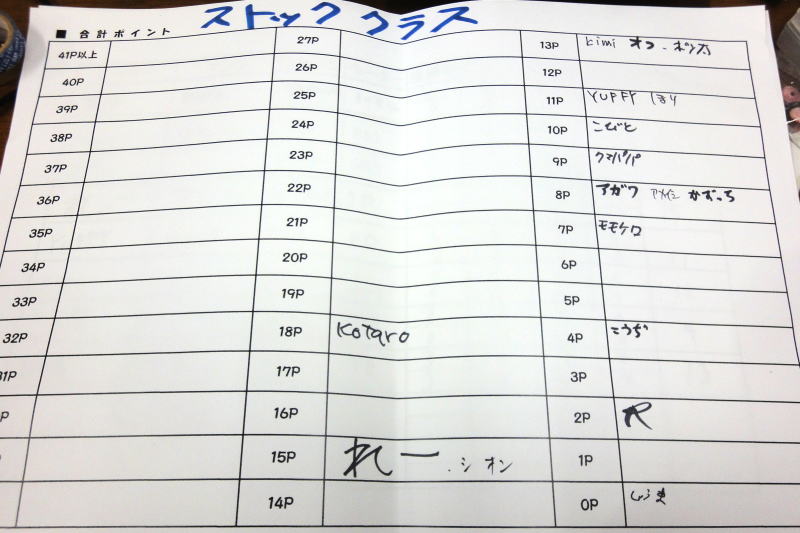 ストック クラス
■ 合計ポイント
41P以上
40P
39P
38P
37P
36P
35P
34P
33P
32P
27P
26P
25P
24P
23P
22P
21P
20P
19P
18P Kotaro
17P
16P
15P れー . シオン
14P
13P kimi オコ - ポン太
12P
11P YUPPY ほり
10P こびと
9P クマパパ
8P アガワ かずっち
7P モモケロ
6P
5P
4P こうじ
3P
2P R
1P
0P しょうま